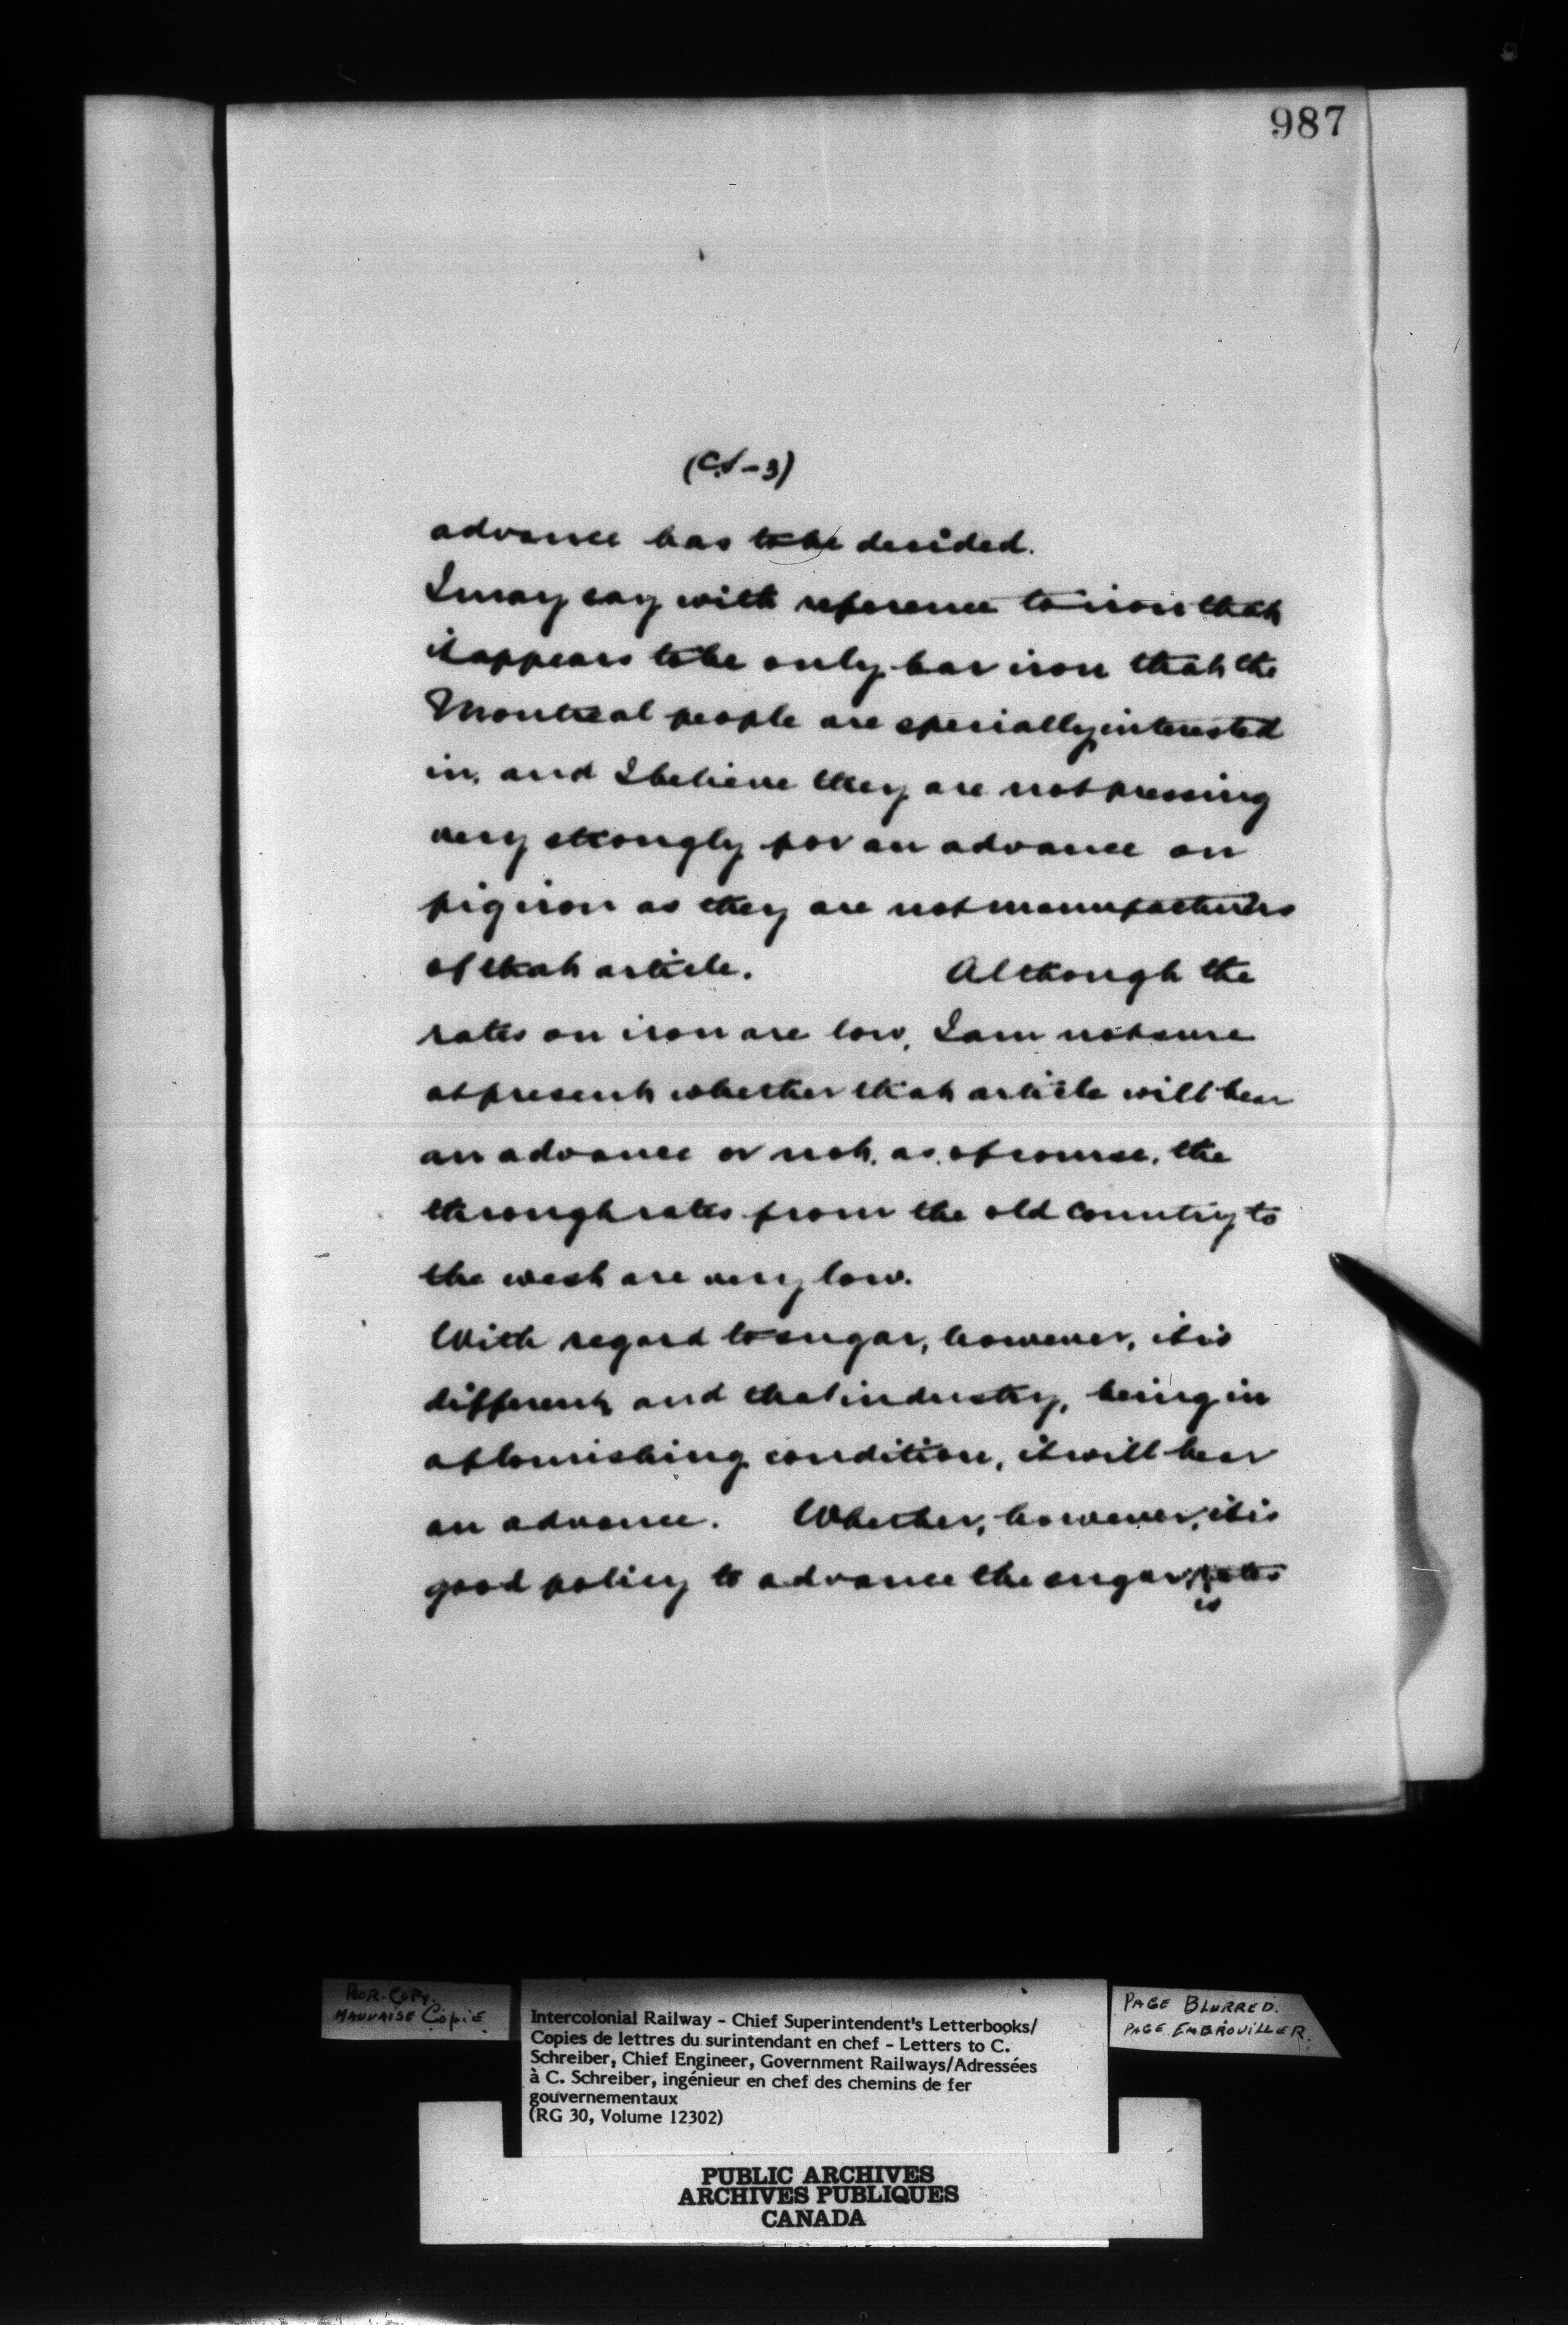 987
(C.S-3)
advance has to be decided.
I may say with reference to iron that
it appears to be only bar iron that the
Montreal people are specially interested
in, and I believe they are not pressing
very strongly for an advance on
pig iron as they are not manufacturers
of that article. Although the
rates on iron are low, I am not sure
at present whether that article will bear
an advance or not, as, of course, the
through rates from the old country to
the west are very low.
With regard to sugar, however, it is
different, and that industry, being in
a flourishing condition, it will bear
an advance. Whether, however, it is
good policy to advance the sugar rates
is
POOR COPY.
MAUVAISE COPIE
Intercolonial Railway - Chief Superintendent's Letterbooks/
Copies de lettres du surintendant en chef - Letters to C.
Schreiber, Chief Engineer, Government Railways/Adressées
à C. Schreiber, ingénieur en chef des chemins de fer
gouvernementaux
(RG 30, Volume 12302)
PAGE BLURRED.
PAGE EMBROUILLER.
PUBLIC ARCHIVES
ARCHIVES PUBLIQUES
CANADA